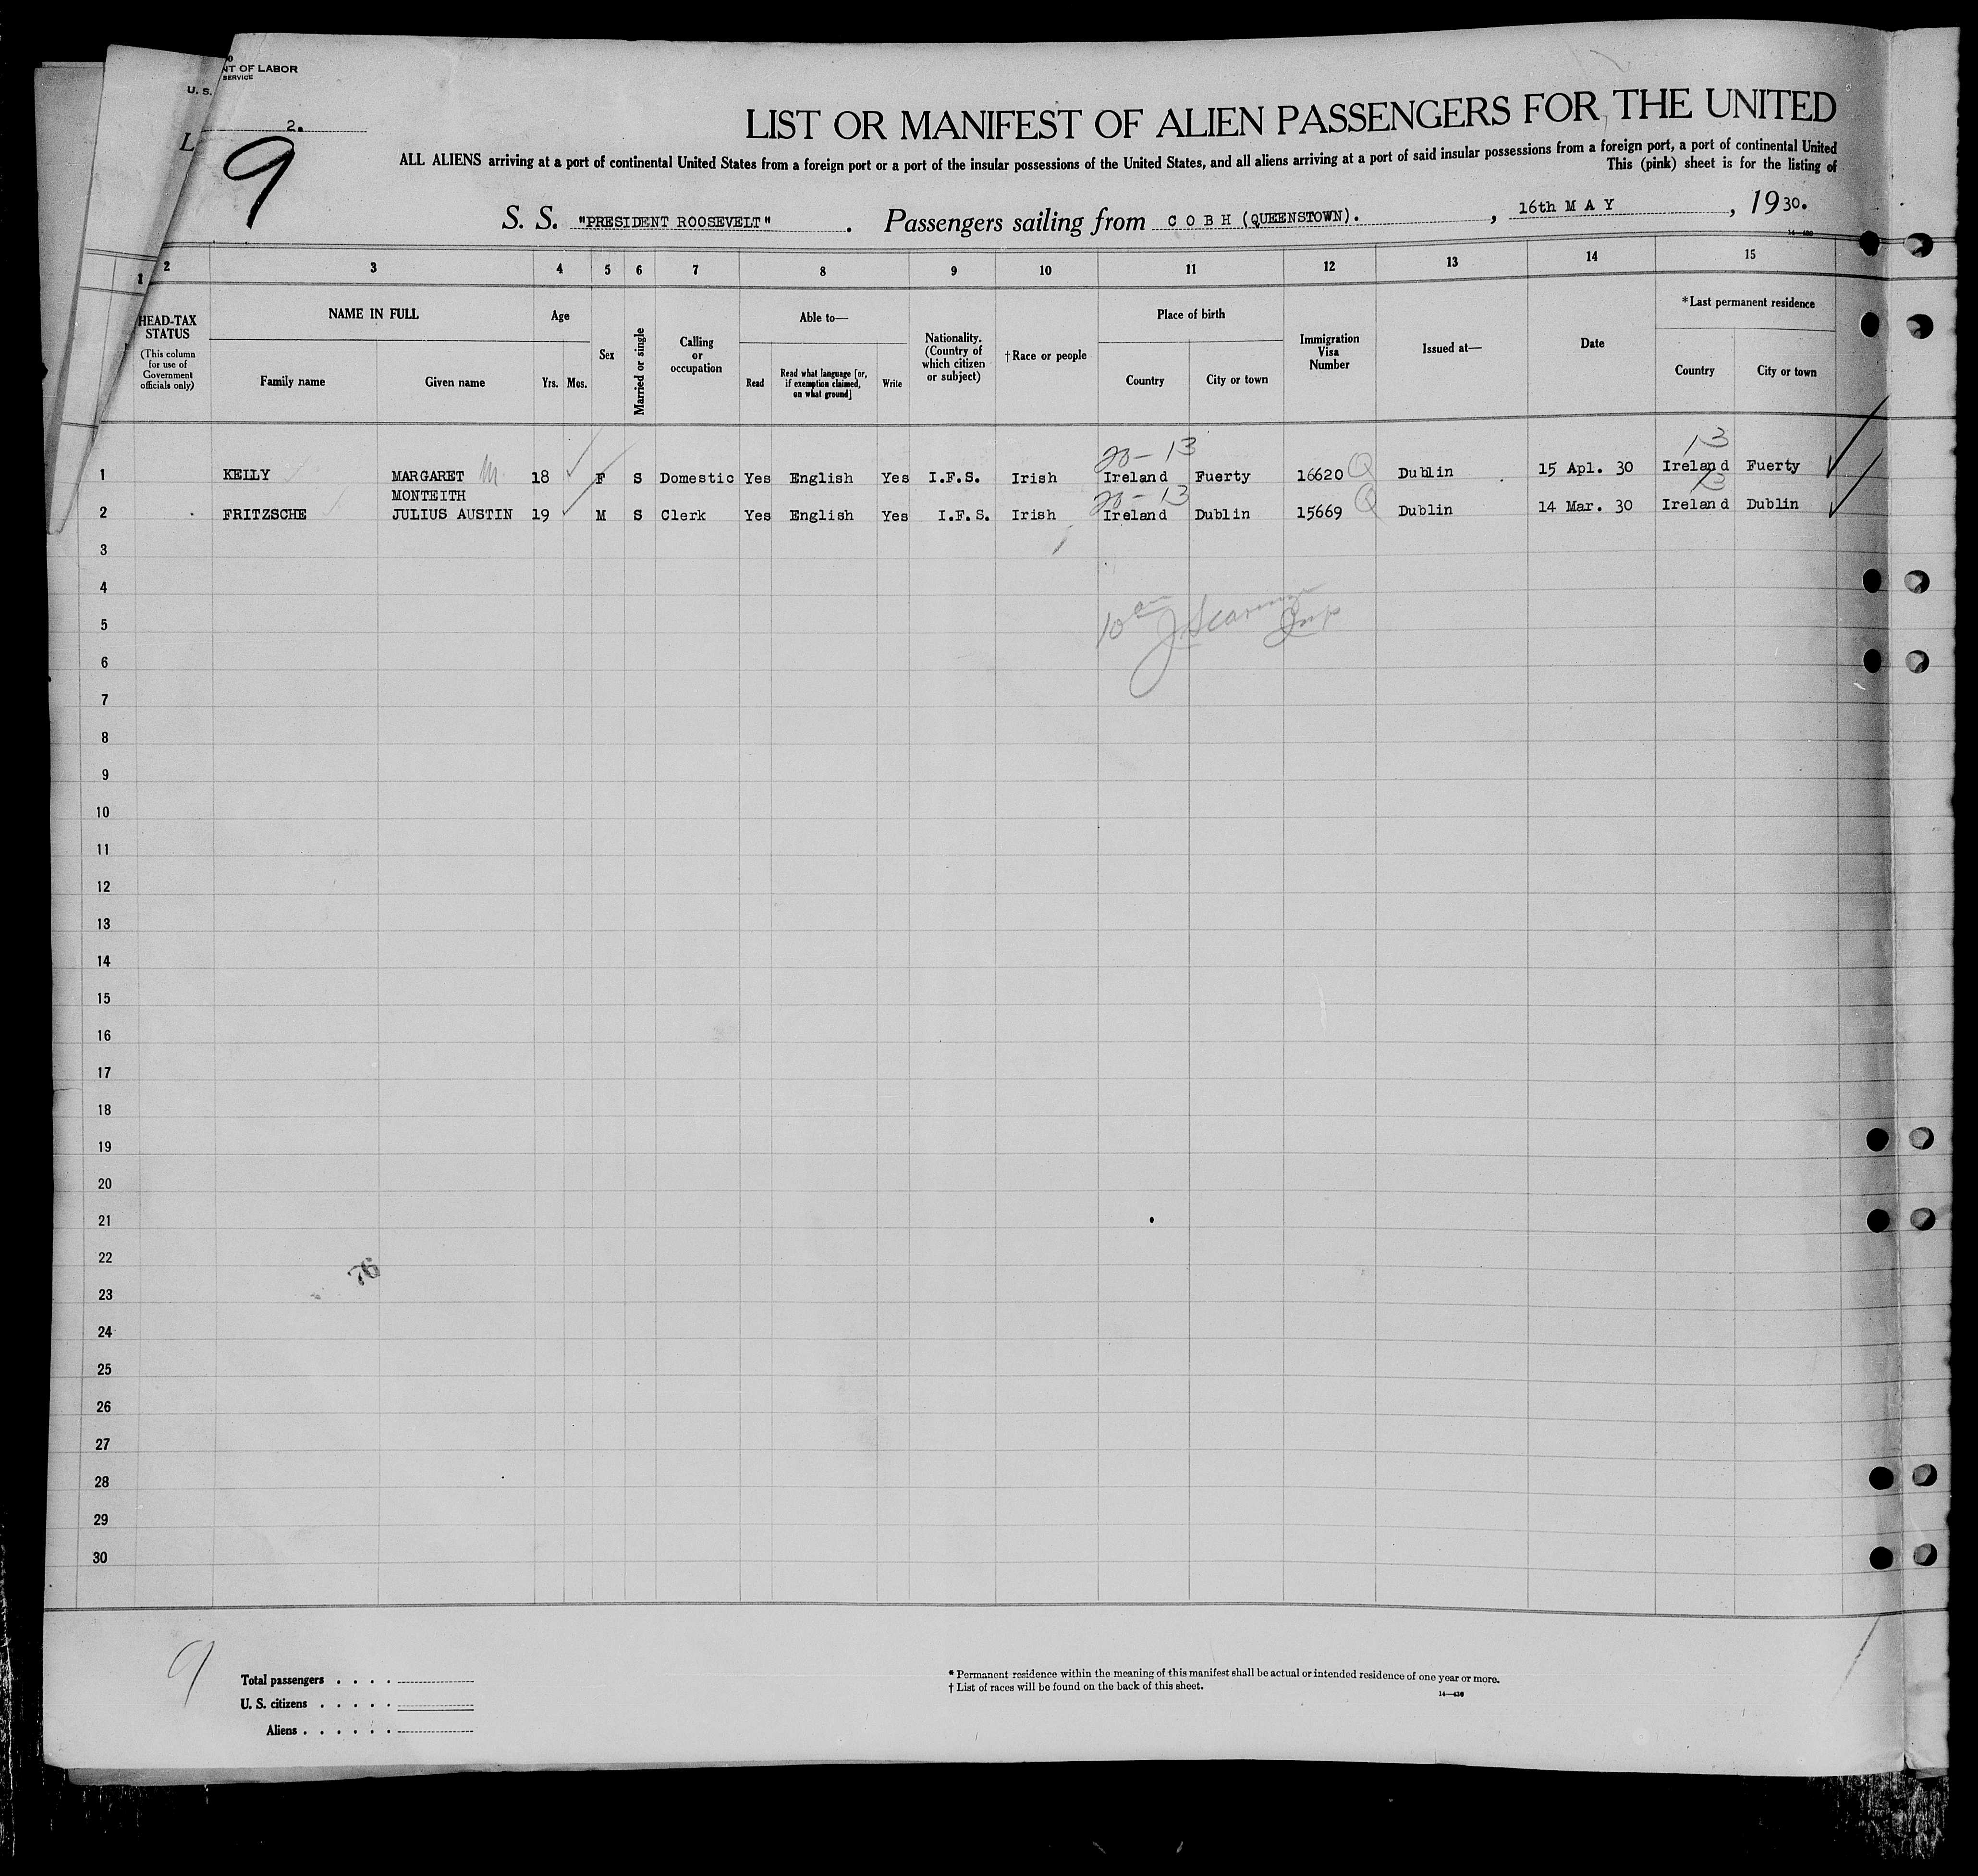 NT OF LABOR
SERVICE
U. S.
L
2.
9
LIST OR MANIFEST OF ALIEN PASSENGERS FOR THE UNITED
ALL ALIENS arriving at a port of continental United States from a foreign port or a port of the insular possessions of the United States, and all aliens arriving at a port of said insular possessions from a foreign port, a port of continental United
This (pink) sheet is for the listing of
S. S. "PRESIDENT ROOSEVELT". Passengers sailing from COBH (QUEENSTOWN)., 16th MAY, 1930.
14—430
1 2 3 4 5 6 7 8 9 10 11 12 13 14 15
HEAD-TAX STATUS (This column for use of Government officials only)
NAME IN FULL
Family name Given name
Age
Yrs. Mos.
Sex
Married or single
Calling or occupation
Able to—
Read Read what language [or, if exemption claimed, on what ground] Write
Nationality. (Country of which citizen or subject)
†Race or people
Place of birth
Country City or town
Immigration Visa Number
Issued at—
Date
*Last permanent residence
Country City or town
20-13 13
1 KELLY MARGARET M 18 F S Domestic Yes English Yes I.F.S. Irish Ireland Fuerty 16620 Q Dublin 15 Apl. 30 Ireland Fuerty
MONTEITH 20-13 13
2 FRITZSCHE JULIUS AUSTIN 19 M S Clerk Yes English Yes I.F.S. Irish Ireland Dublin 15669 Q Dublin 14 Mar. 30 Ireland Dublin
3
4
5
6
7
8
9
10
11
12
13
14
15
16
17
18
19
20
21
22
23
24
25
26
27
28
29
30
9
Total passengers
U. S. citizens
Aliens
* Permanent residence within the meaning of this manifest shall be actual or intended residence of one year or more.
† List of races will be found on the back of this sheet.
14—430